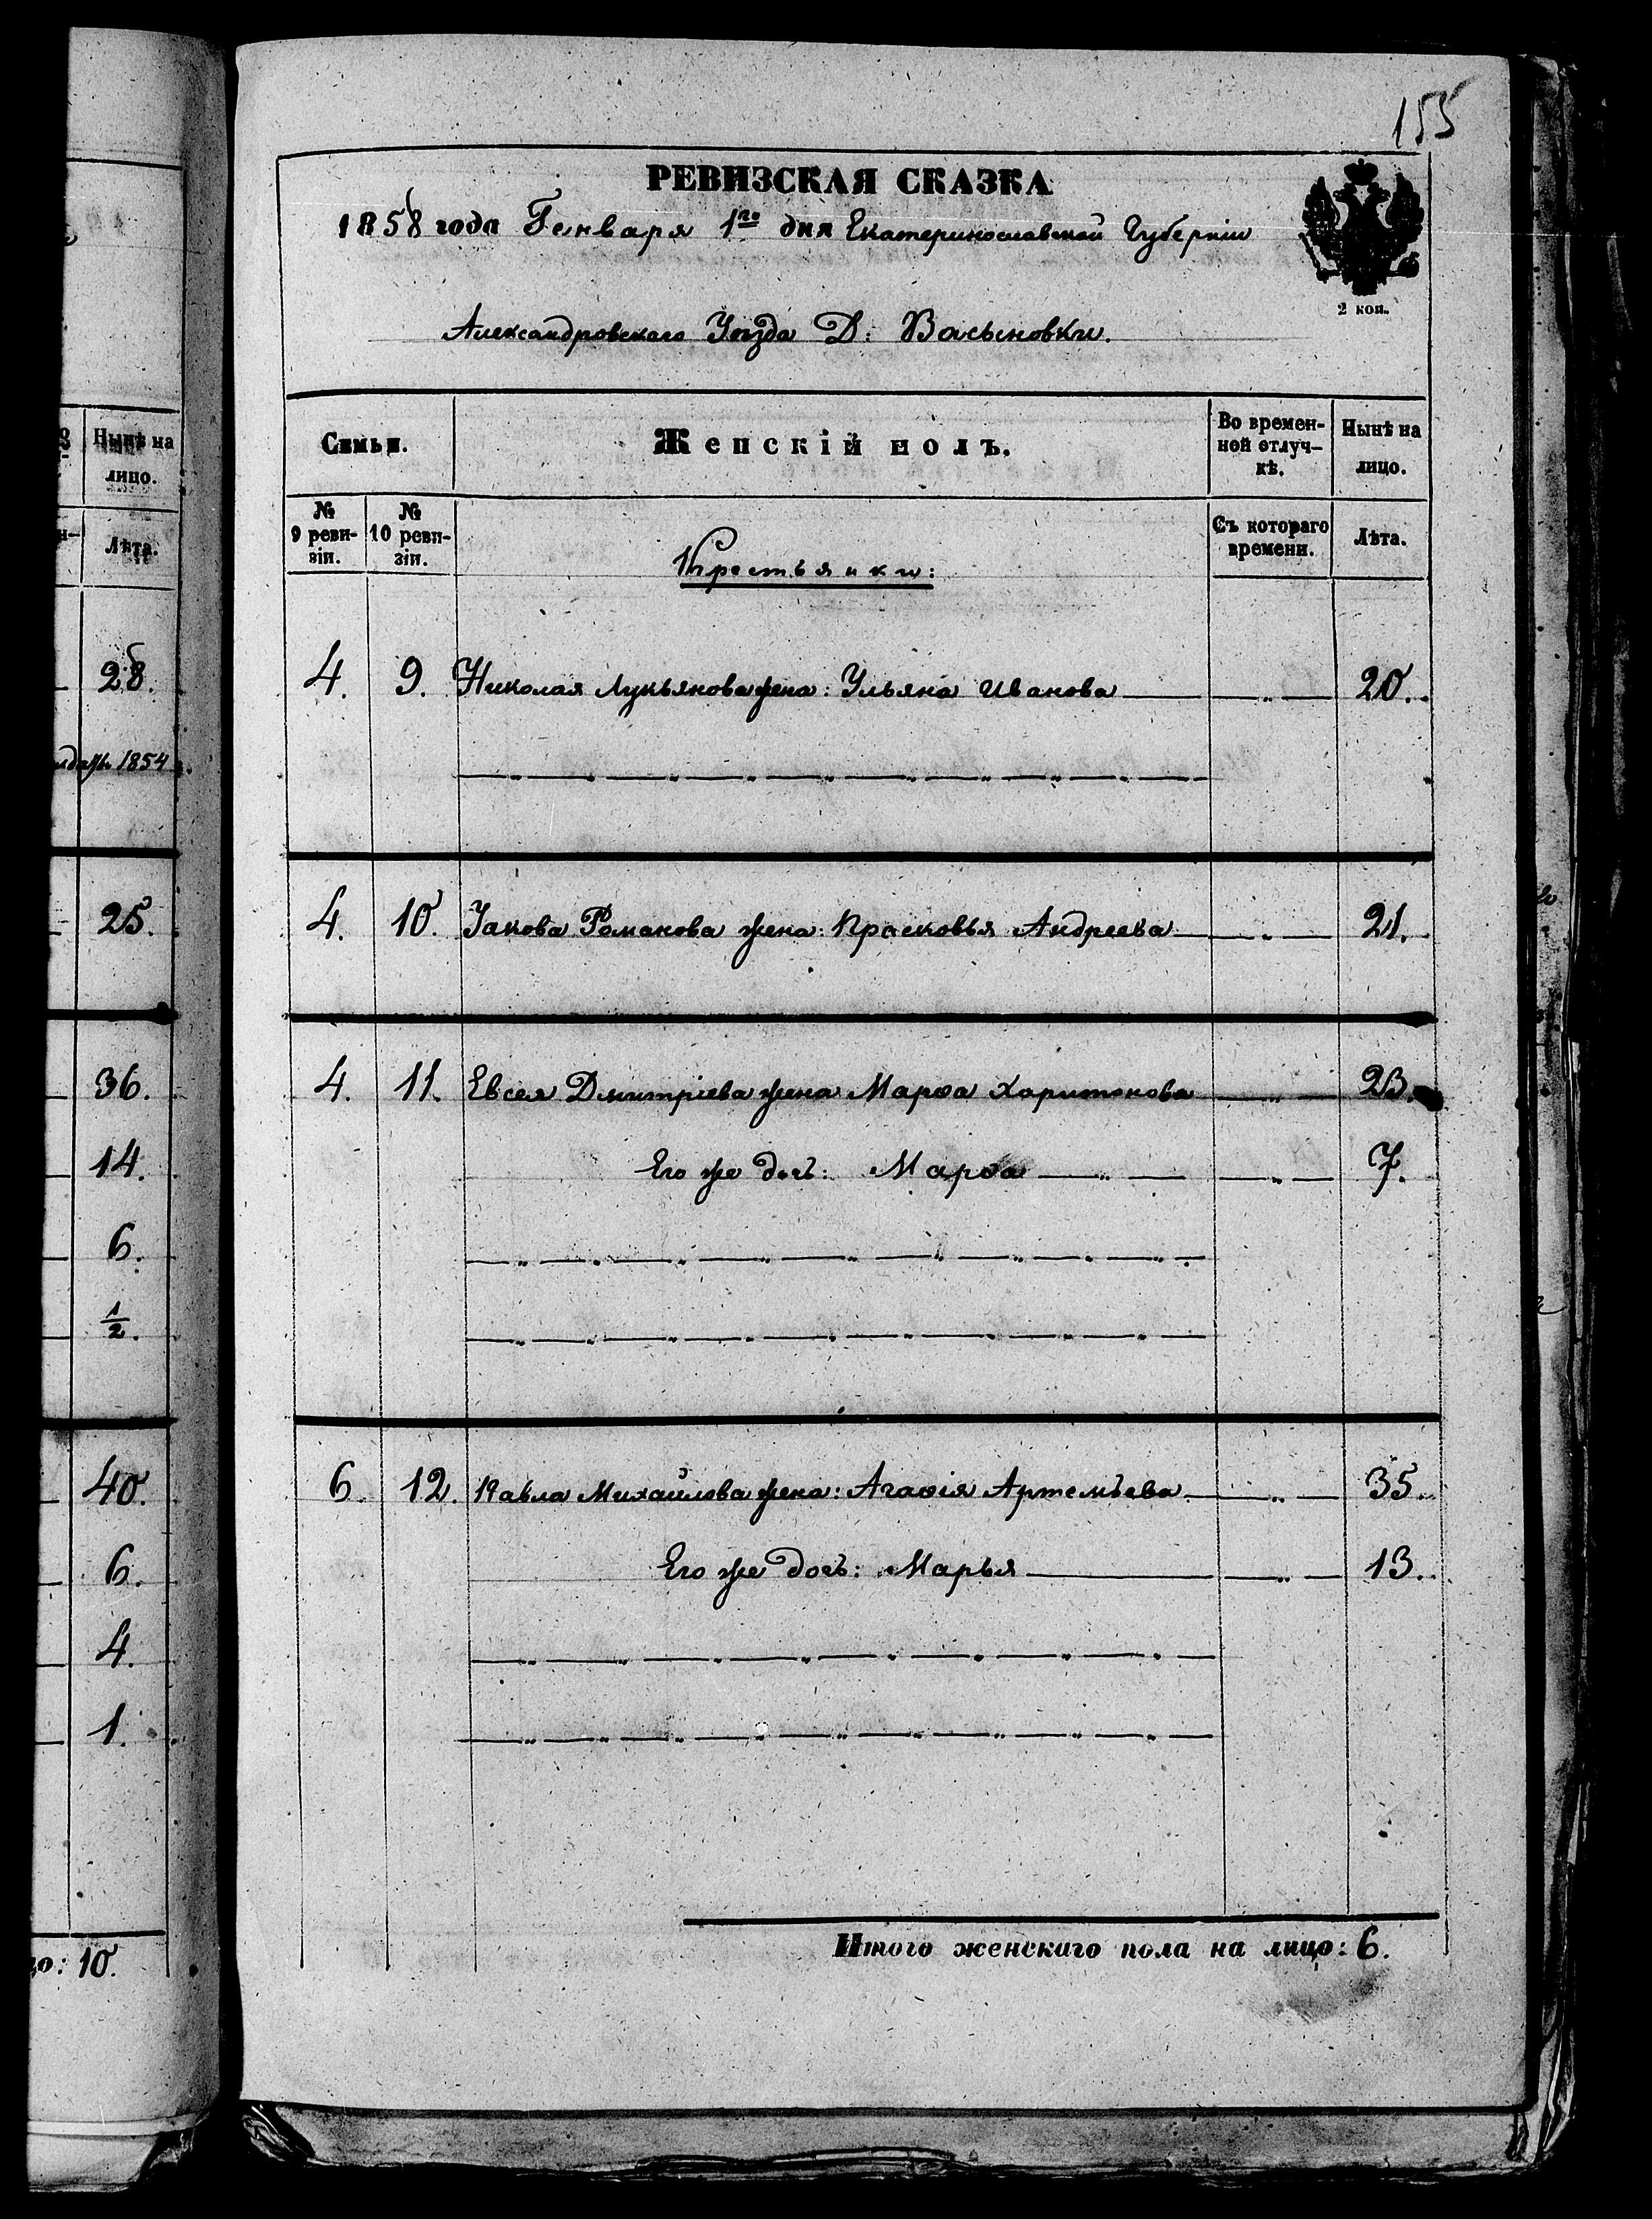 28.
1854
25.
36.
14.
6.
1/2.
40.
6.
4.
1.
10.
Нынѣ на
лицо.
Лѣта.
155
РЕВИЗСКАЯ СКАЗКА
1858 года Генваря 1го дня Екатеринославской Губерніи
2 коп.
Александровскаго Уѣзда Д: Васыновки.
Семьи.
Женскій полъ.
Во времен-
ной отлуч-
кѣ.
Нынѣ на
лицо.
№
9 реви-
зіи.
№
10 реви-
зіи.
Съ котораго
времени.
Лѣта.
Крестьянки:
4. 9. Николая Лукьянова жена: Ульяна Иванова — „ — 20.
4. 10. Іакова Романова жена: Прасковья Андреева — „ — 21.
4. 11. Евсея Дмитріева жена Марѳа Харитонова — „ — 23.
Его же дочь: Марѳа — „ — — „ — 7.
6. 12. Павла Михайлова жена: Агаѳія Артемьева — „ — 35.
Его же дочь: Марья — — „ — 13.
Итого женскаго пола на лицо: 6.